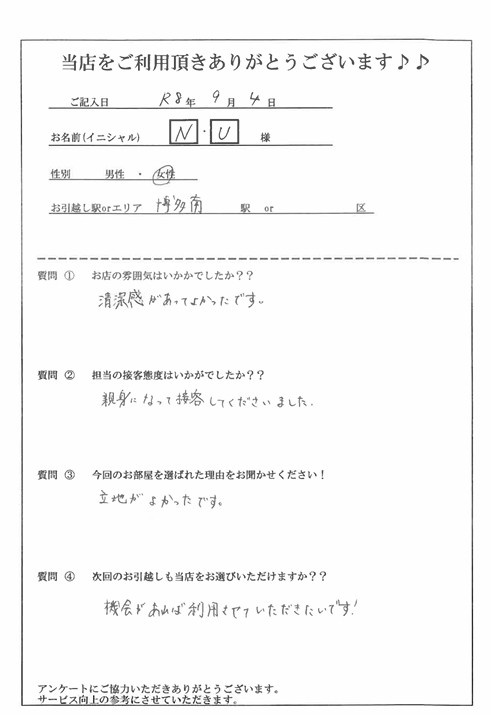 当店をご利用頂きありがとうございます♪♪
ご記入日 R8年 9月 4日
お名前(イニシャル) N・U 様
性別 男性 ・ 女性
お引越し駅orエリア 博多南 駅 or 区
質問 ① お店の雰囲気はいかかでしたか??
清潔感があってよかったです。
質問 ② 担当の接客態度はいかがでしたか??
親身になって接客してくださいました.
質問 ③ 今回のお部屋を選ばれた理由をお聞かせください!
立地がよかったです。
質問 ④ 次回のお引越しも当店をお選びいただけますか??
機会があれば利用させていただきたいです!
アンケートにご協力いただきありがとうございます。
サービス向上の参考にさせていただきます。